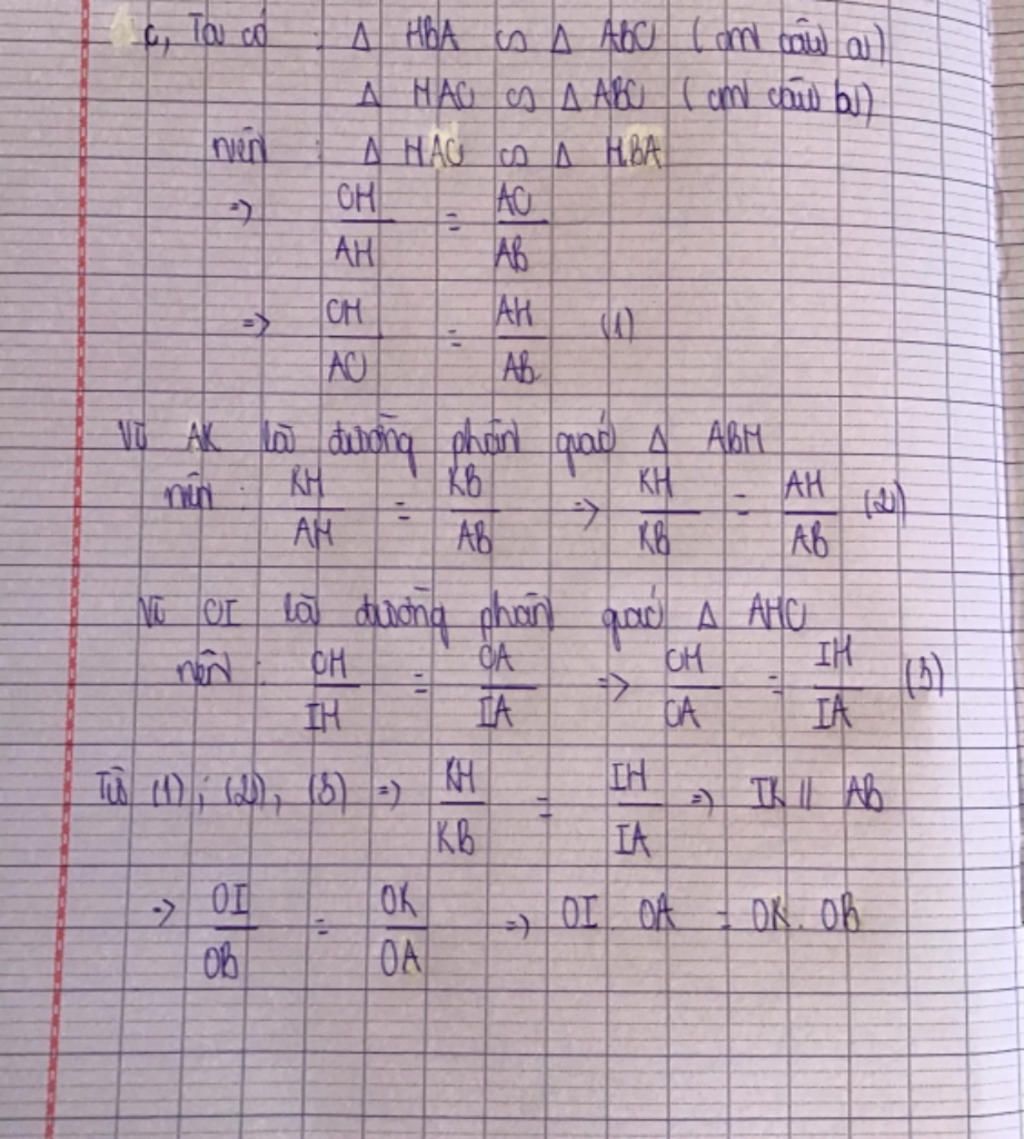 c, Ta có : Δ HBA ∽ Δ ABC (cm câu a)
Δ HAC ∽ Δ ABC (cm câu b)
nên : Δ HAC ∽ Δ HBA
=> CH/AH = AC/AB
=> CH/AC = AH/AB (1)
Vì AK là đường phân giác Δ ABH
nên : KH/AH = KB/AB => KH/KB = AH/AB (2)
Vì CI là đường phân giác Δ AHC
nên : CH/IH = CA/IA => CH/CA = IH/IA (3)
Từ (1); (2), (3) => KH/KB = IH/IA => IK // AB
=> OI/OB = OK/OA => OI . OA = OK . OB